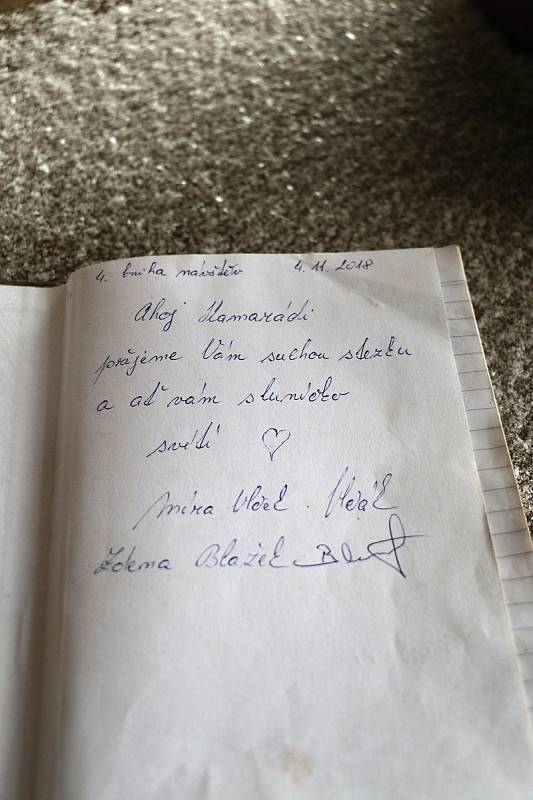 4. kniha návštěv 4. 11. 2018
Ahoj Kamarádi
přejeme Vám suchou stezku
a ať vám sluníčko
svítí
Míra Vlček
Zdena Blažek